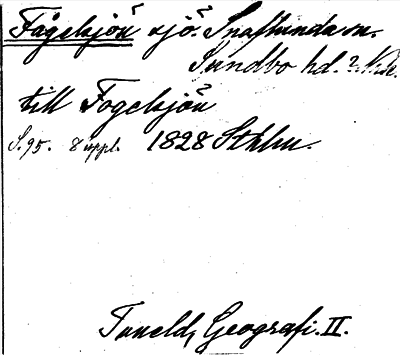 Fågelsjön sjö. Snaflunda sn.
Sundbo hd. ? Närke.
till Fogelsjön
S. 95. 8 uppl. 1828 Sthlm.
Tuneld, Geografi. II.